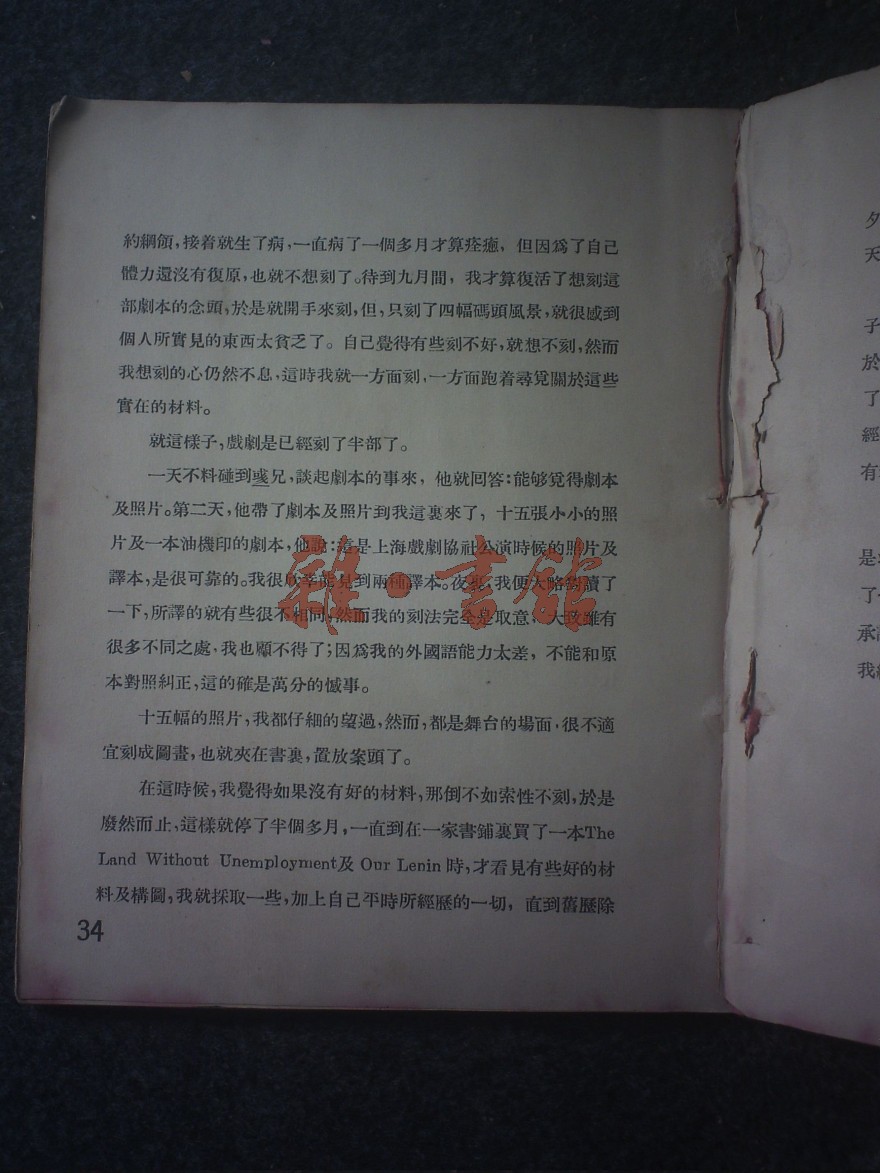 約綱領，接着就生了病，一直病了一個多月才算痊癒，但因爲了自己
體力還沒有復原，也就不想刻了。待到九月間，我才算復活了想刻這
部劇本的念頭，於是就開手來刻，但，只刻了四幅碼頭風景，就很感到
個人所實見的東西太貧乏了。自己覺得有些刻不好，就想不刻，然而
我想刻的心仍然不息，這時我就一方面刻，一方面跑着尋覓關於這些
實在的材料。
就這樣子，戲劇是已經刻了半部了。
一天不料碰到彧兄，談起劇本的事來，他就回答：能够覓得劇本
及照片。第二天，他帶了劇本及照片到我這裏來了，十五張小小的照
片及一本油機印的劇本，他說：這是上海戲劇協社公演時候的照片及
譯本，是很可靠的。我很欣幸能見到兩種譯本。夜裏，我便大略對讀了
一下，所譯的就有些很不相同，然而我的刻法完全是取意，大致雖有
很多不同之處，我也顧不得了；因爲我的外國語能力太差，不能和原
本對照糾正，這的確是萬分的憾事。
十五幅的照片，我都仔細的望過，然而，都是舞台的場面，很不適
宜刻成圖畫，也就夾在書裏，置放案頭了。
在這時候，我覺得如果沒有好的材料，那倒不如索性不刻，於是
廢然而止、這樣就停了半個多月，一直到在一家書鋪裏買了一本The
Land Without Unemployment及 Our Lenin 時，才看見有些好的材
料及構圖，我就採取一些，加上自己平時所經歷的一切，直到舊歷除
34
雜·書館
夕
天
子
於
了
經
有
是
了
承
我